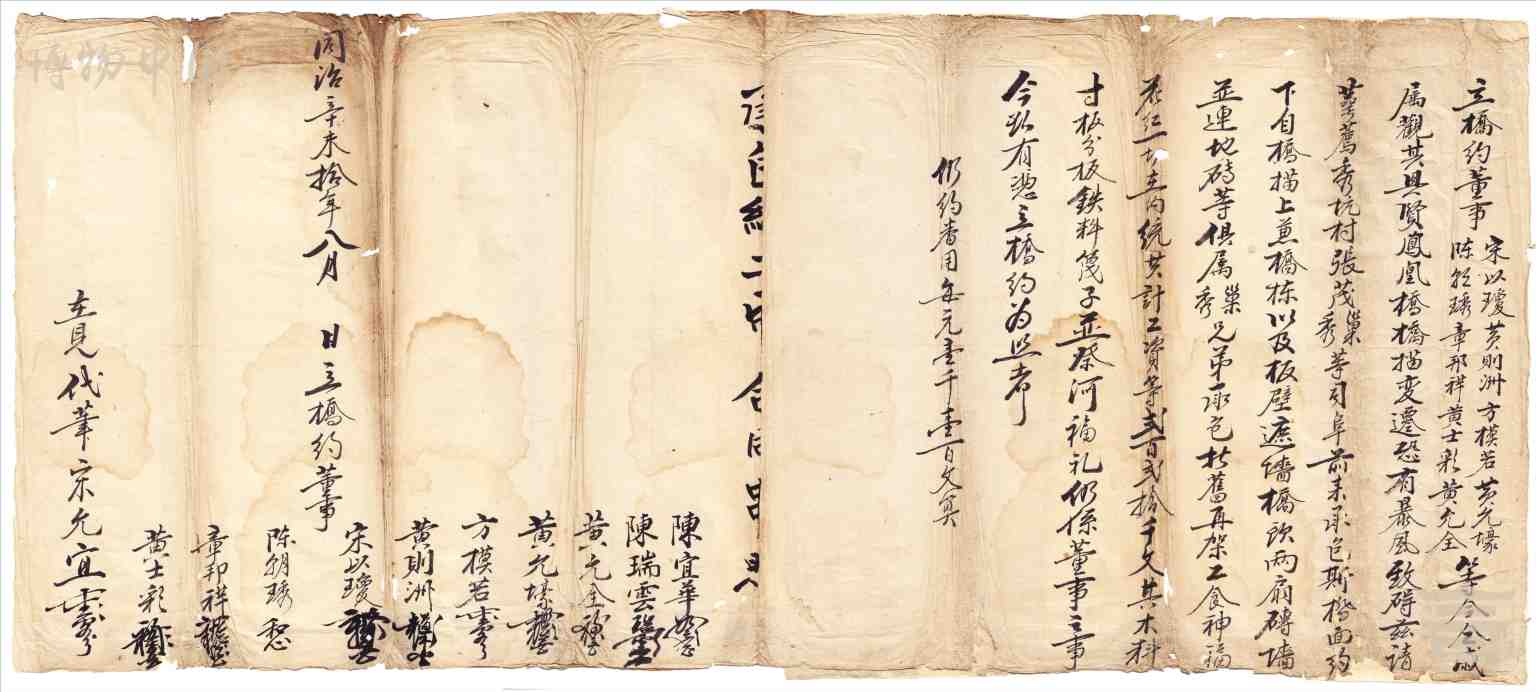 立橋約董事宋以瓊黄則洲方模若黄允壕陈朝琇章邦祥黄士彩黄允全等今
属觀其具賢鳳凰橋橋描変遷恐有暴風致碍兹請
茶蔫秀坑村張茂巢秀等司阜前来承包斯橋面約
下自橋描上兼橋栋以及板壁遮墻橋欤兩扇磚墻
並連地磚等俱属巢秀兄弟承包折舊再架工食神福
花紅一切在内統共計工資等貳百貳拾千文其木料
寸板分板鉄料篾子並祭河福礼仍係董事之事
今欲有憑立橋約为照者
仍約番用每元壹千壹百文算
合同
陳宜華
陳瑞雲
黄允全
黄允壕
方模若
黄則洲
同治辛未拾年八月 日立橋約董事宋以瓊
陈朝琇
章邦祥
黄士彩
在見代筆宋允宜
博物中国